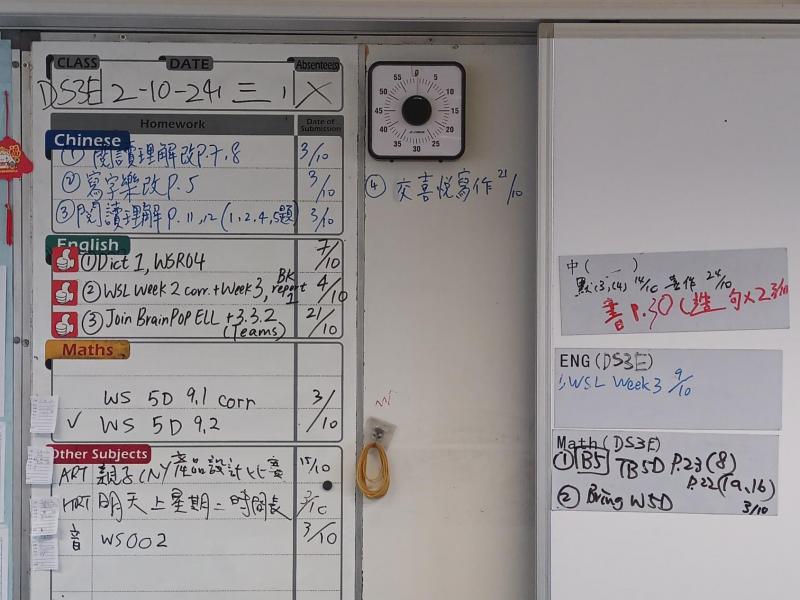 CLASS DATE Absentee(s)
DS3E 2-10-24 三 X
Homework Date of Submission
Chinese
① 閱讀理解改P.7,8 3/10
② 寫字樂改P.5 3/10
③ 閱讀理解 P.11,12 (1,2,4,5題) 3/10
④ 交喜悅寫作 21/10
English
① Dict 1, WSR04 7/10
② WSL Week 2 corr. + Week 3, BK report 1 4/10
③ Join BrainPOP ELL + 3.3.2 (Teams) 21/10
Maths
WS 5D 9.1 corr 3/10
✓ WS 5D 9.2
Other Subjects
ART 親子 產品設計比賽 15/10
HRT 明天上星期二時間表 3/10
音 WS002 3/10
0 5 10 15 20 25 30 35 40 45 50 55
中 ( )
默:3,(4) 14/10 作 24/10
書 P.30 (造句x2 3/10
ENG (DS3E)
1, WSL Week 3 9/10
Math (DS3E)
① B5 TB5D P.23 (8)
P.22 (19,16)
② Bring W5D 3/10